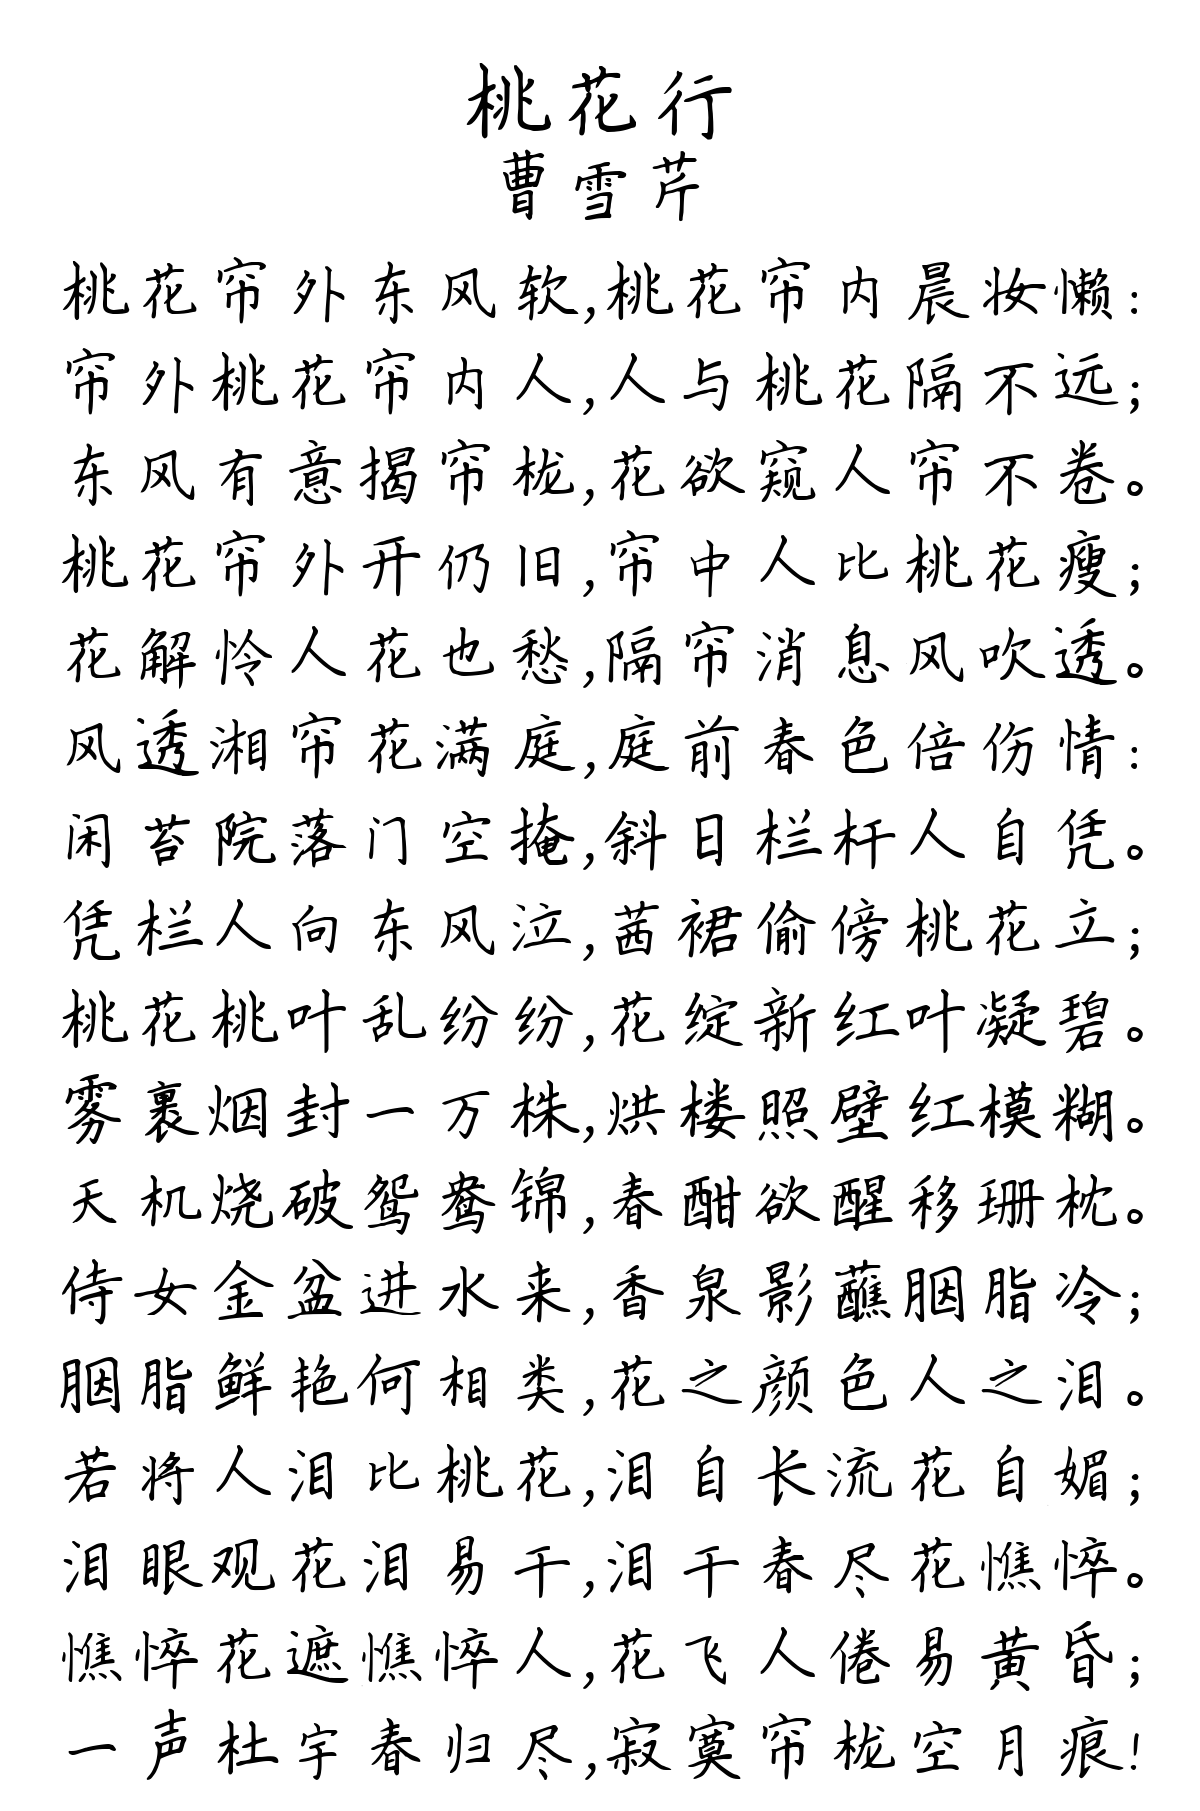 桃花行
曹雪芹
桃花帘外东风软,桃花帘内晨妆懒:
帘外桃花帘内人,人与桃花隔不远;
东风有意揭帘栊,花欲窥人帘不卷。
桃花帘外开仍旧,帘中人比桃花瘦;
花解怜人花也愁,隔帘消息风吹透。
风透湘帘花满庭,庭前春色倍伤情:
闲苔院落门空掩,斜日栏杆人自凭。
凭栏人向东风泣,茜裙偷傍桃花立;
桃花桃叶乱纷纷,花绽新红叶凝碧。
雾裹烟封一万株,烘楼照壁红模糊。
天机烧破鸳鸯锦,春酣欲醒移珊枕。
侍女金盆进水来,香泉影蘸胭脂冷;
胭脂鲜艳何相类,花之颜色人之泪。
若将人泪比桃花,泪自长流花自媚;
泪眼观花泪易干,泪干春尽花憔悴。
憔悴花遮憔悴人,花飞人倦易黄昏;
一声杜宇春归尽,寂寞帘栊空月痕!